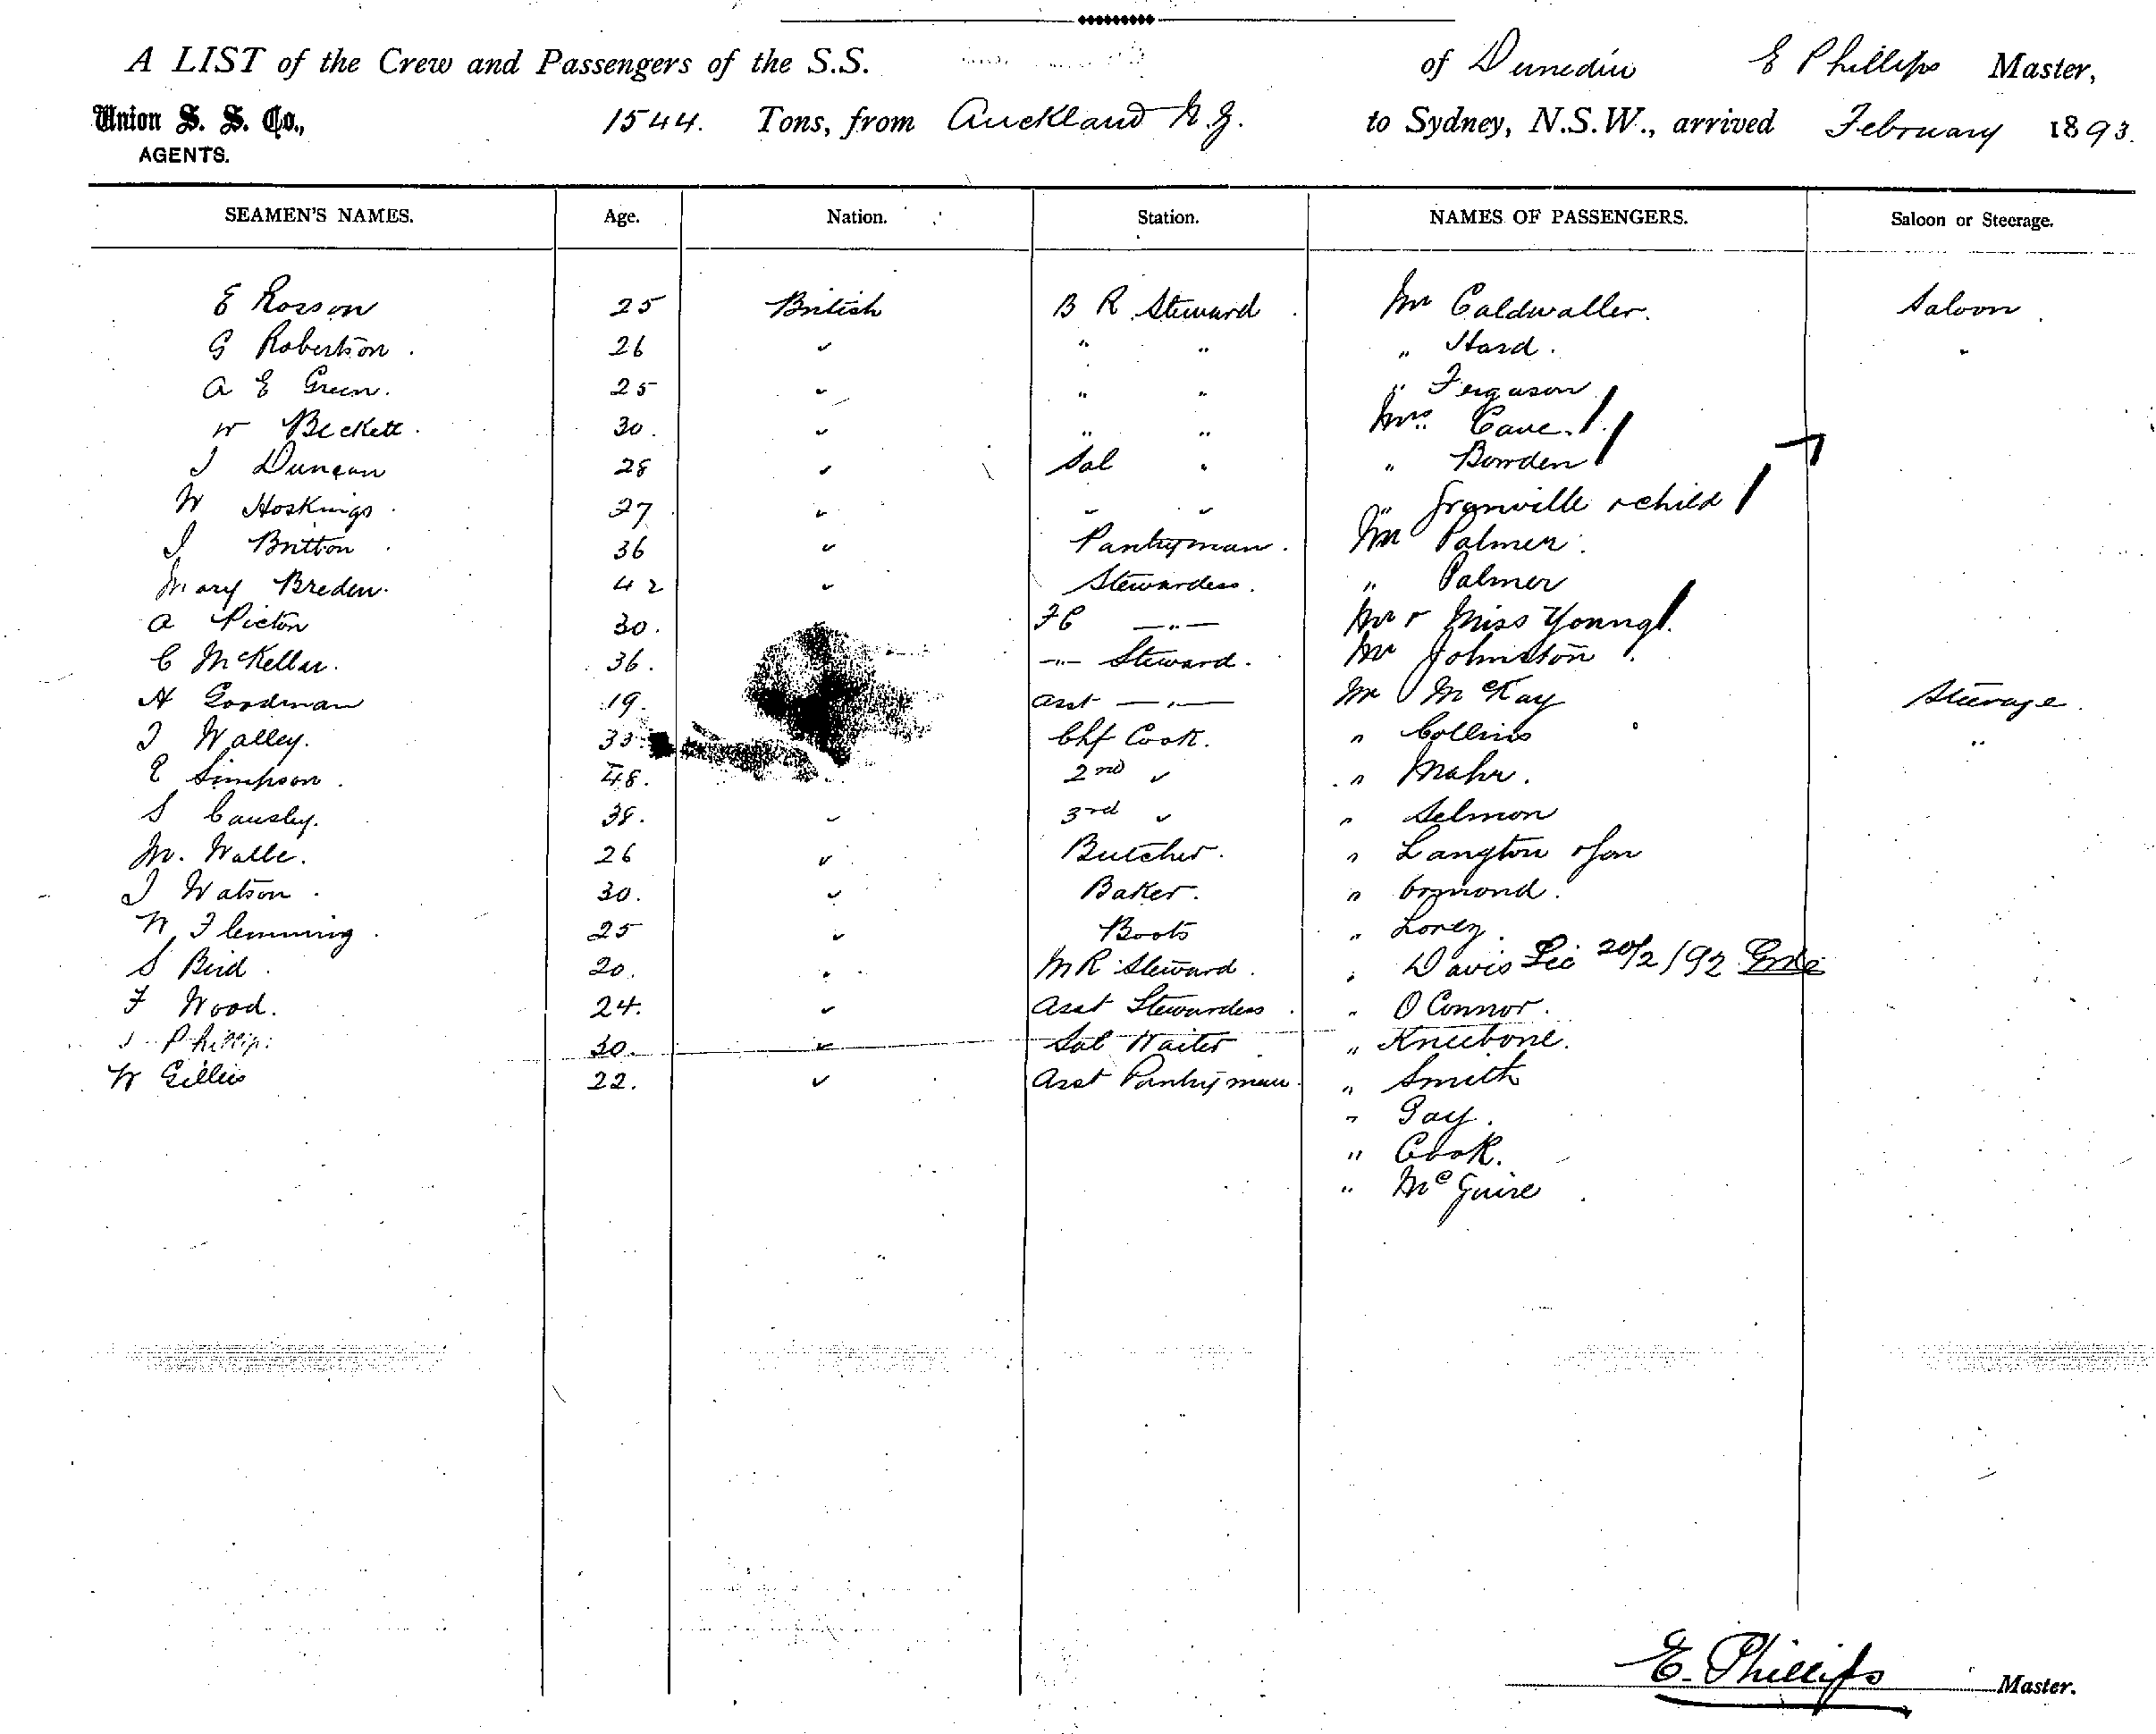 A LIST of the Crew and Passengers of the S.S. of Dunedin E Phillips Master,
Union S. S. Co., 1544. Tons, from Auckland N.Z. to Sydney, N.S.W., arrived February 1893.
AGENTS.
SEAMEN'S NAMES. Age. Nation. Station. NAMES OF PASSENGERS. Saloon or Steerage.
E Rosson 25 British B R Steward Mr Caldwaller. Saloon
G Robertson. 26 " " " " Hard. "
A E Green. 25 " " " " Ferguson
W Beckett. 30. " " " Mrs. Cave.
J Duncan 28 " Sal " " Bowden
W Hoskings 27 " " " " Granville & child
J Britton 36 " Pantryman. Mr Palmer.
Mary Breden. 42 " Stewardess. " Palmer
A Picton 30. FC —"— Mr & Miss Young.
C McKellar. 36. —"— Steward. Mr Johnston
H Goodman 19. Asst —"— Mr McKay Steerage.
J Walley. 33. Chf Cook. " Collins "
E Simpson. 48. 2nd " " Mahr.
S Causley. 38. " 3rd " " Selmon
M. Walle. 26 " Butcher. " Langton & son
J Watson 30. " Baker. " Ormond.
W Flemming. 25 " Boots "
S Bird 20. " M R Steward. " Davis 20/2/92
F Wood. 24. " Asst Stewardess " O Connor.
J Phillips 30. " Sal Waiter " Kneebone.
W Gillies 22. " Asst Pantryman. " Smith
" Gay.
" Cook.
" McGuire
E. Phillips Master.